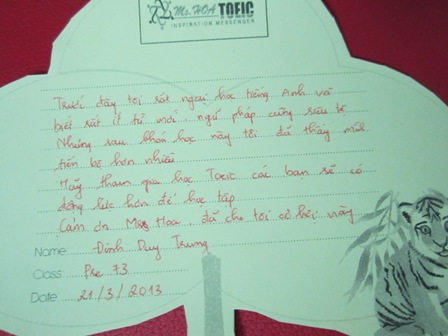 Ms. HOA TOEIC
INSPIRATION MESSENGER
Trước đây tôi rất ngại học tiếng Anh và
biết rất ít từ mới, ngữ pháp cũng siêu tệ
Nhưng sau khóa học này tôi đã thấy mình
tiến bộ hơn nhiều
Hãy tham gia học Toeic các bạn sẽ có
động lực hơn để học tập
Cảm ơn Ms Hoa đã cho tôi cơ hội này
Name: Đinh Duy Trung
Class: Pre 73
Date: 21/3/2013